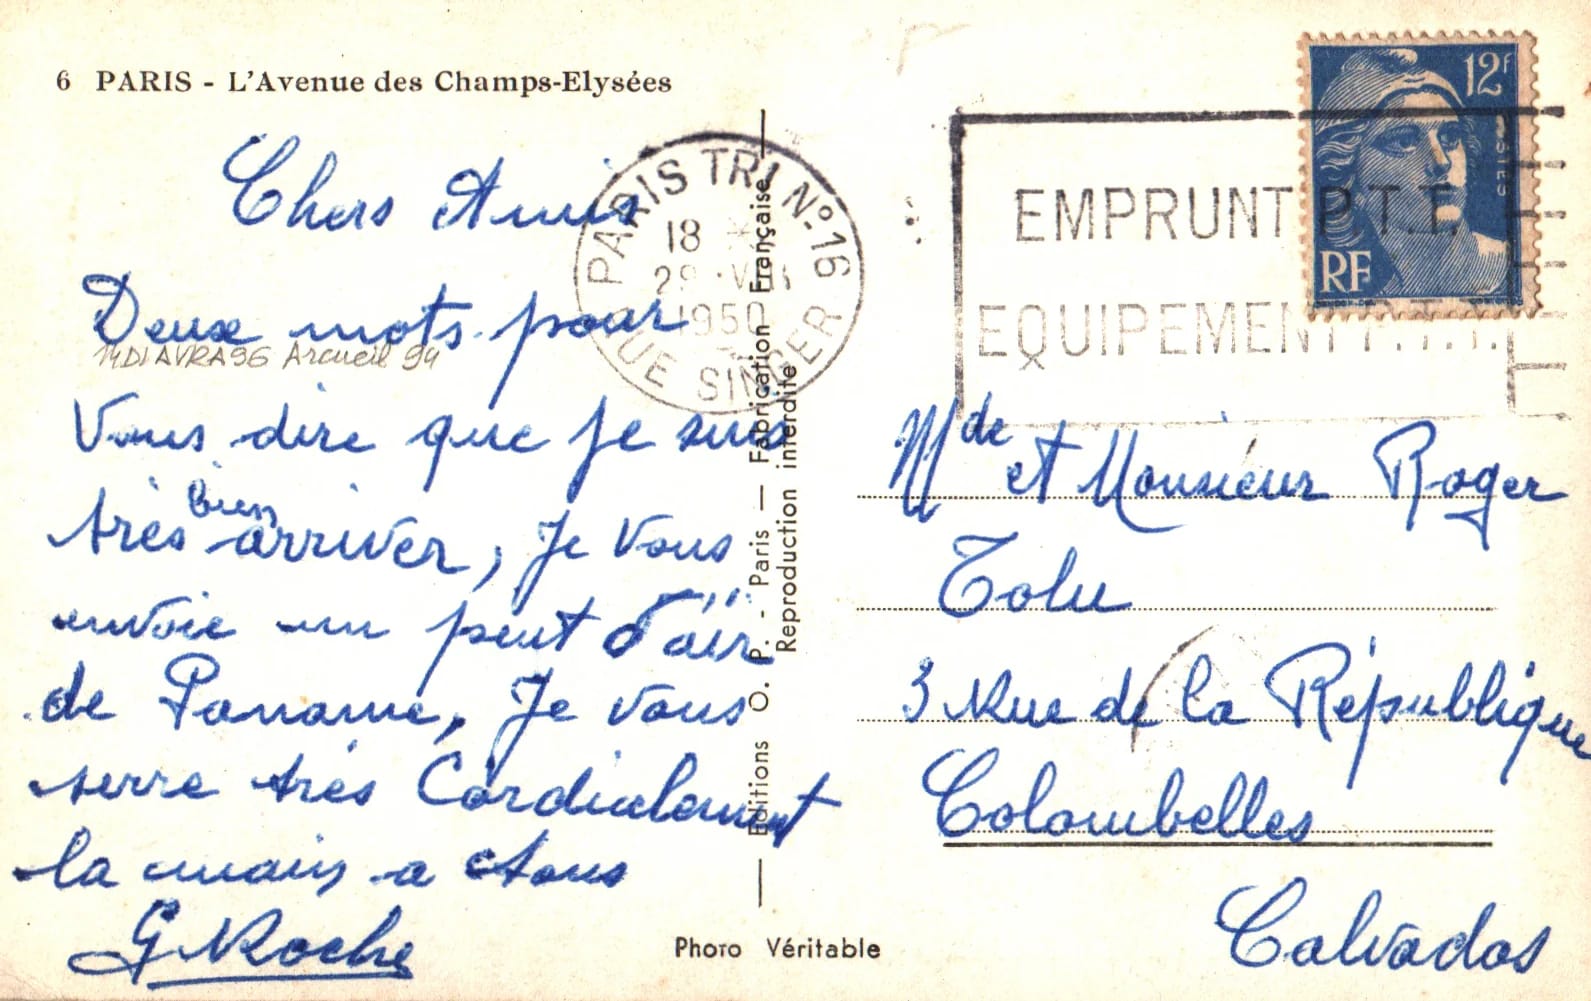 6 PARIS - L'Avenue des Champs-Elysées
Chers Amis
Deux mots pour
Arcueil 94
Vous dire que je suis
très bien arriver, Je Vous
envoie un peut d'air
de Paname, Je vous
serre très Cordialement
la main a tous
G Roche
PARIS TRI Nº 16
18 *
29 · VIII
1950
RUE SINGER
— Editions O. P. - Paris — Fabrication Française —
Reproduction interdite
Photo Véritable
EMPRUNT P.T.T.
EQUIPEMENT P.T.T.
12F
POSTES
RF
Mde et Monsieur Roger
Tolu
3 Rue de la République
Colombelles
Calvados